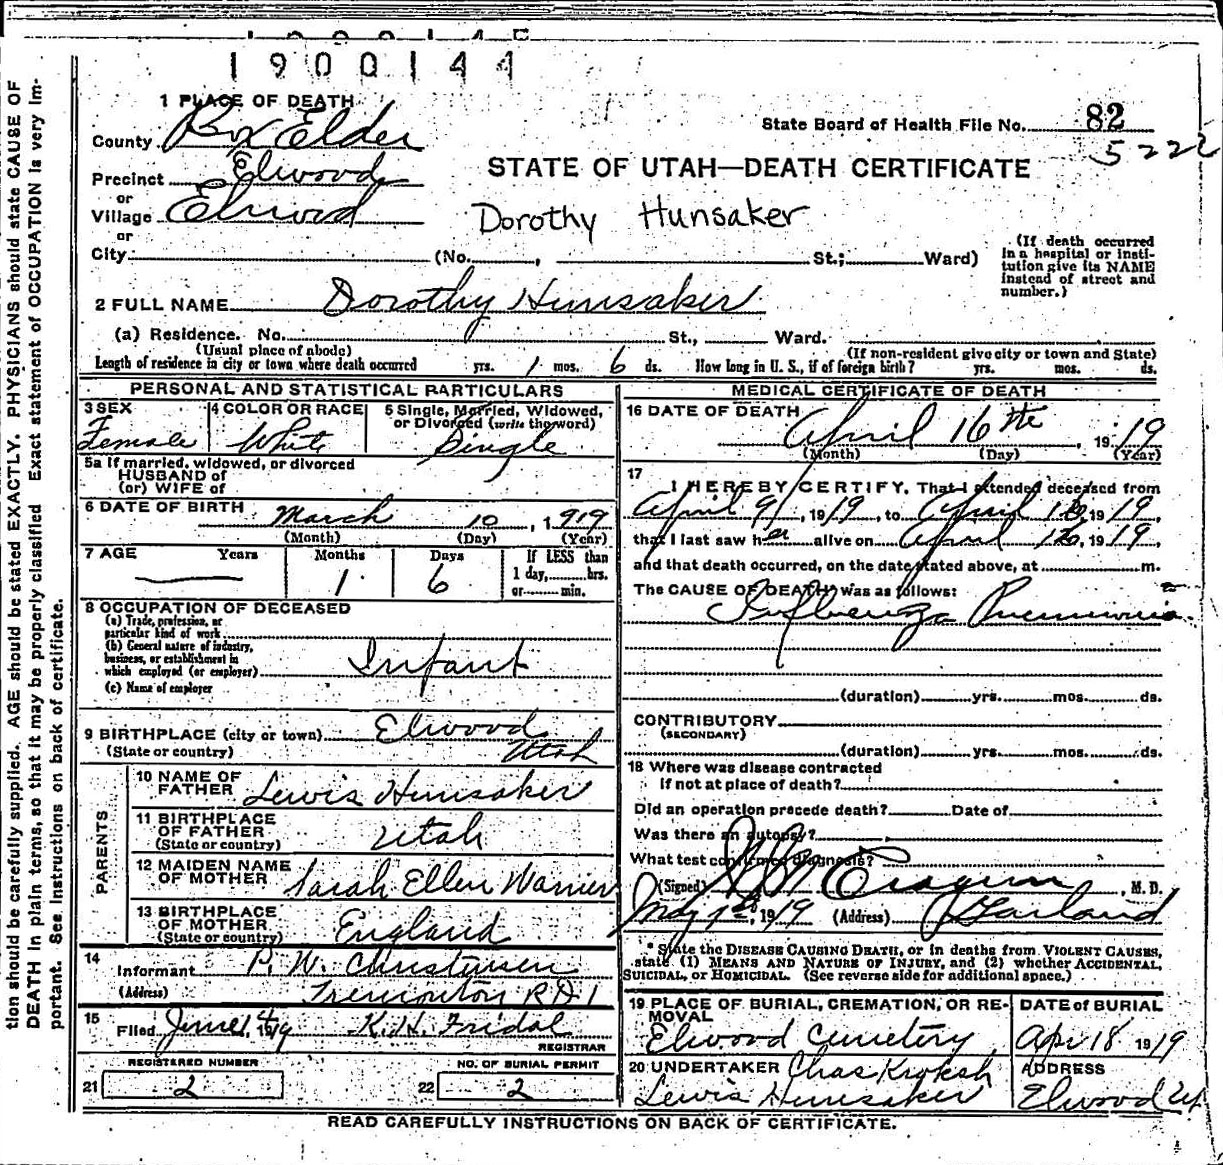 1900144
1 PLACE OF DEATH
County Box Elder
State Board of Health File No. 82
5222
Precinct Elwood
or
Village Elwood
or
STATE OF UTAH—DEATH CERTIFICATE
Dorothy Hunsaker
City (No. , St.; Ward)
(If death occurred in a hospital or institution give its NAME instead of street and number.)
2 FULL NAME Dorothy Hunsaker
(a) Residence. No. St., Ward.
(Usual place of abode) (If non-resident give city or town and State)
Length of residence in city or town where death occurred yrs. 1 mos. 6 ds. How long in U. S., if of foreign birth? yrs. mos. ds.
PERSONAL AND STATISTICAL PARTICULARS
3 SEX Female
4 COLOR OR RACE White
5 Single, Married, Widowed, or Divorced (write the word) Single
5a If married, widowed, or divorced
HUSBAND of
(or) WIFE of
6 DATE OF BIRTH March 10, 1919
(Month) (Day) (Year)
7 AGE Years Months Days If LESS than
1 6 1 day, hrs.
or min.
8 OCCUPATION OF DECEASED
(a) Trade, profession, or
particular kind of work
(b) General nature of industry,
business, or establishment in
which employed (or employer) Infant
(c) Name of employer
9 BIRTHPLACE (city or town) Elwood
(State or country) Utah
PARENTS
10 NAME OF FATHER Lewis Hunsaker
11 BIRTHPLACE OF FATHER (State or country) Utah
12 MAIDEN NAME OF MOTHER Sarah Ellen Warner
13 BIRTHPLACE OF MOTHER (State or country) England
14 Informant P. W. Christensen
(Address) Tremonton RD1
15 Filed June 1919 K. H. Fridal
REGISTRAR
REGISTERED NUMBER
21 2
NO. OF BURIAL PERMIT
22 2
MEDICAL CERTIFICATE OF DEATH
16 DATE OF DEATH
April 16th, 1919
(Month) (Day) (Year)
17 I HEREBY CERTIFY, That I attended deceased from
April 9, 1919, to April 16, 1919,
that I last saw her alive on April 16, 1919,
and that death occurred, on the date stated above, at m.
The CAUSE OF DEATH was as follows:
Influenza Pneumonia
(duration) yrs. mos. ds.
CONTRIBUTORY
(SECONDARY)
(duration) yrs. mos. ds.
18 Where was disease contracted
if not at place of death?
Did an operation precede death? Date of
Was there an autopsy?
What test confirmed diagnosis?
(Signed) M. D.
1919 (Address) Garland
* State the DISEASE CAUSING DEATH, or in deaths from VIOLENT CAUSES,
state (1) MEANS AND NATURE OF INJURY, and (2) whether ACCIDENTAL,
SUICIDAL, or HOMICIDAL. (See reverse side for additional space.)
19 PLACE OF BURIAL, CREMATION, OR REMOVAL
Elwood Cemetery
DATE OF BURIAL
Apr 18 1919
20 UNDERTAKER Chas
Lewis Hunsaker
ADDRESS
Elwood Ut
READ CAREFULLY INSTRUCTIONS ON BACK OF CERTIFICATE.
tion should be carefully supplied. AGE should be stated EXACTLY. PHYSICIANS should state CAUSE OF
DEATH in plain terms, so that it may be properly classified. Exact statement of OCCUPATION is very im-
portant. See instructions on back of certificate.